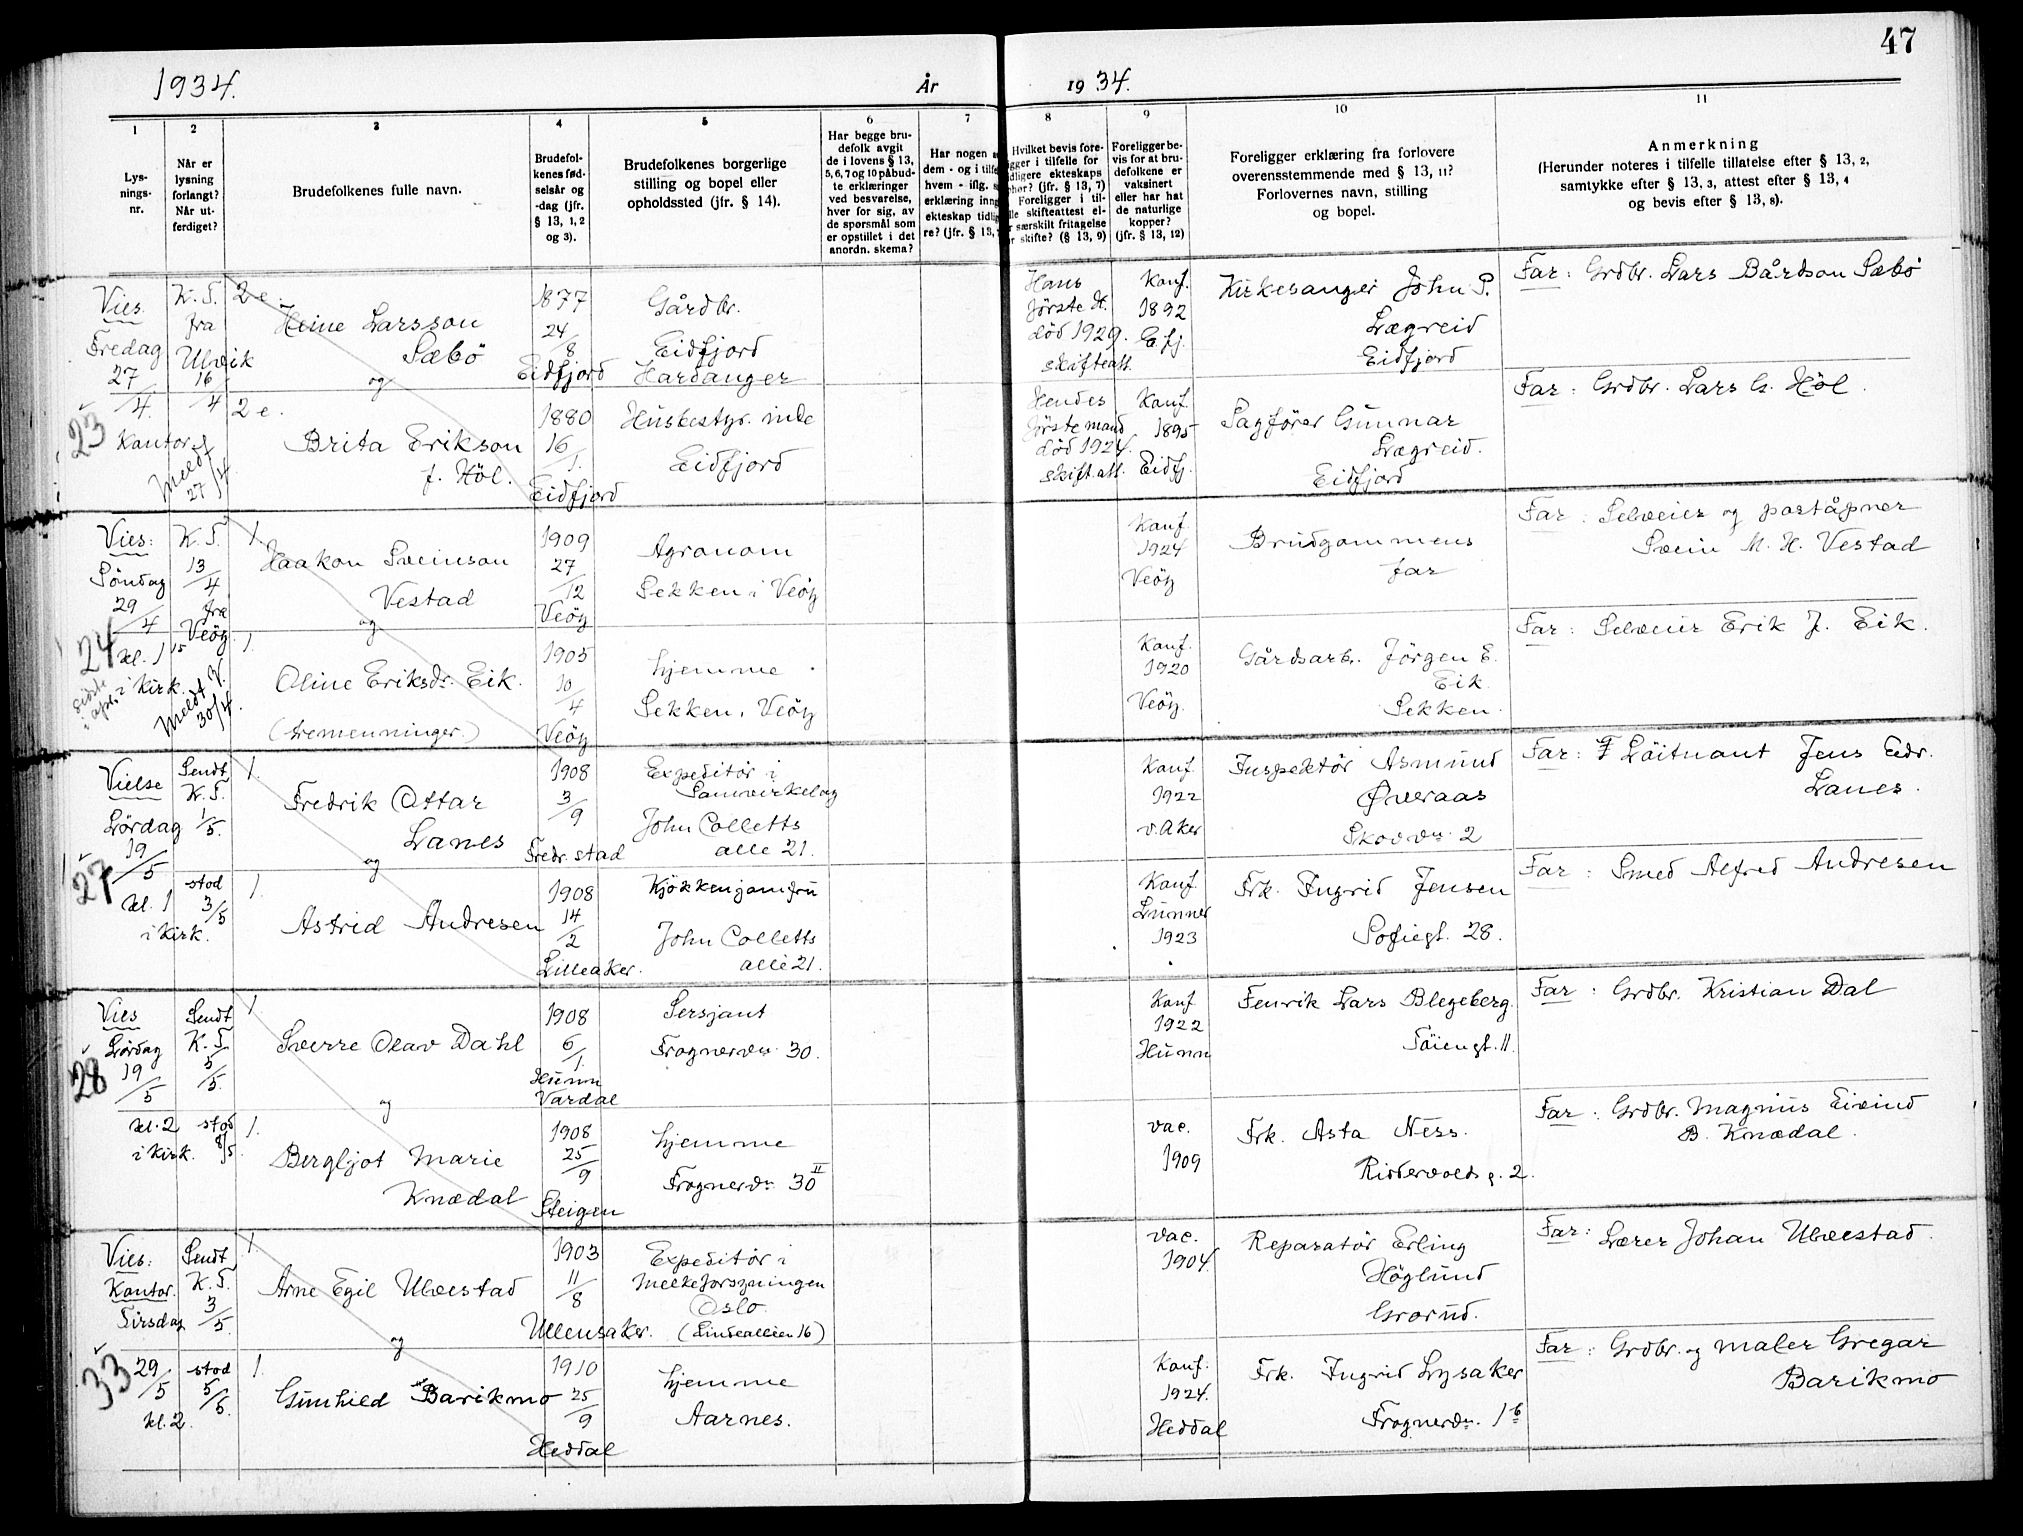 47
1934.
År
1934.
1
2
3
4
5
6
7
8
9
10
11
Lys-
nings-
nr.
Når er
lysning
forlangt?
Når ut-
ferdiget?
Brudefolkenes fulle navn.
Brudefol-
kenes fød-
selsår og
-dag (jfr.
§ 13, 1, 2
og 3).
Brudefolkenes borgerlige
stilling og bopel eller
opholdssted (jfr. § 14).
Har begge bru-
defolk avgit
de i lovens § 13,
5, 6, 7 og 10 påbud-
te erklæringer
ved besvarelse,
hver for sig, av
de spørsmål som
er opstillet i det
anordn. skema?
Har nogen
dem - og i tilfe
hvem - iflg.
erklæring inng
ekteskap tidlig
re? (jfr. § 13,
Hvilket bevis fore-
igger i tilfelle for
idligere ekteskaps
phør? (jfr. § 13, 7)
Foreligger i til-
lle skifteattest el-
r særskilt fritagelse
r skifte? (§ 13, 9)
Foreligger be-
vis for at bru-
defolkene er
vaksinert
eller har hat
de naturlige
kopper?
(jfr. § 13, 12)
Foreligger erklæring fra forlovere
overensstemmende med § 13, 11?
Forlovernes navn, stilling
og bopel.
Anmerkning
(Herunder noteres i tilfelle tillatelse efter § 13, 2,
samtykke efter § 13, 3, attest efter § 13, 4
og bevis efter § 13, 8).
Vies
Fredag
27
/4.
23
Kontor
Meldt
27/4
K. T.
fra
Ulvik
16
/4
2 e.
Heine Larsson
Sæbö
og
1877
24
/8
Eidfjord
Gårdbr.
Eidfjord
Hardanger
Hans
förste H.
död 1929.
skifteatt.
Konf.
1892
Eifj.
Kirkesanger John P.
Lægreid
Eidfjord
Far: Grdbr. Lars Bårdson Sæbö
2 e.
Brita Erikson
f. Höl.
1880
16
/1.
Eidfjord
Husbestyr. inde
Eidfjord
Hendes
förste mand
död 1924.
skift.att.
Konf.
1895
Eidfj.
Sagförer Gunnar
Lægreid.
Eidfjord
Far: Grdbr. Lars G. Höl.
Vies:
Söndag
29
/4
24
kl. 1 15
i Kirk.
K. T.
13
/4
fra
Veöy.
Meldt V.
30/4.
1.
Haakon Sveinson
Vestad
og
1909
27
/12
Veöy
Agronom
Sekken i Veöy
Konf.
1924
Veöy
Brudgommens
far
Far: Selveier og poståpner
Svein M. H. Vestad
1.
Oline Eriksdr. Eik.
(tremenninger.)
1905
10
/4
Veöy
hjemme.
Sekken, Veöy
Konf.
1920
Veöy.
Gårdsarb. Jörgen E.
Eik.
Sekken.
Far: Selveier Erik J. Eik.
Vielse
Lördag
19
/5
27
kl. 1
i Kirk.
Sendt
K. T.
1
/5.
stod
3
/5
1.
Fredrik Ottar
Lanes
og
1908
3
/9
Fredr.stad
Expeditör i
Samvirkelag
John Colletts
alle 21.
Konf.
1922
v. Aker
Inspektör Asmund
Øveraas
Skovvn. 2
Far: Löitnant Jens Edr.
Lanes.
1.
Astrid Andresen
1908
14
/2
Lilleaker.
Kjökkenjomfru
John Colletts
alle 21.
Konf.
Lunner
1923
Frk. Ingrid Jensen
Sofiegt. 28.
Far: Smed Alfred Andresen
Vies
Lördag
19
/5
28
kl. 2
i Kirk.
Sendt
K. T.
5
/5.
stod
8/5.
1.
Sverre Olav Dahl
og
1908
6
/1.
Hunn
Vardal
Sersjant
Frognervn. 30.
Konf
1922
Hunn
Fenrik Lars Blegeberg.
Töiengt. 11.
Far: Grdbr. Kristian Dal
1.
Bergljot Marie
Knædal
1908
25
/9
Steigen
hjemme
Frognervn. 30 II
vac.
1909
Frk. Asta Ness.
Riddervolds g. 2.
Far: Grdbr. Magnus Eivind
B. Knædal.
Vies:
Kontor.
Tirsdag
29
/5
33
kl. 2.
Sendt
K. T.
3
/5.
stod
5
/6.
1.
Arne Egil Ulvestad
og
1903
11
/8
Ullensaker.
Expeditör i
Melkeforsyningen
Oslo.
(Lindealléen 16)
vac.
1904.
Reparatör Erling
Höglund
Grorud.
Far: Lærer Johan Ulvestad.
1.
Gunhild Barikmo
1910
25
/9
Heddal
hjemme
Aarnes.
Konf.
1924.
Heddal
Frk. Ingrid Lysaker
Frognervn. 1 b
Far: Grdbr. og maler Gregar
Barikmo